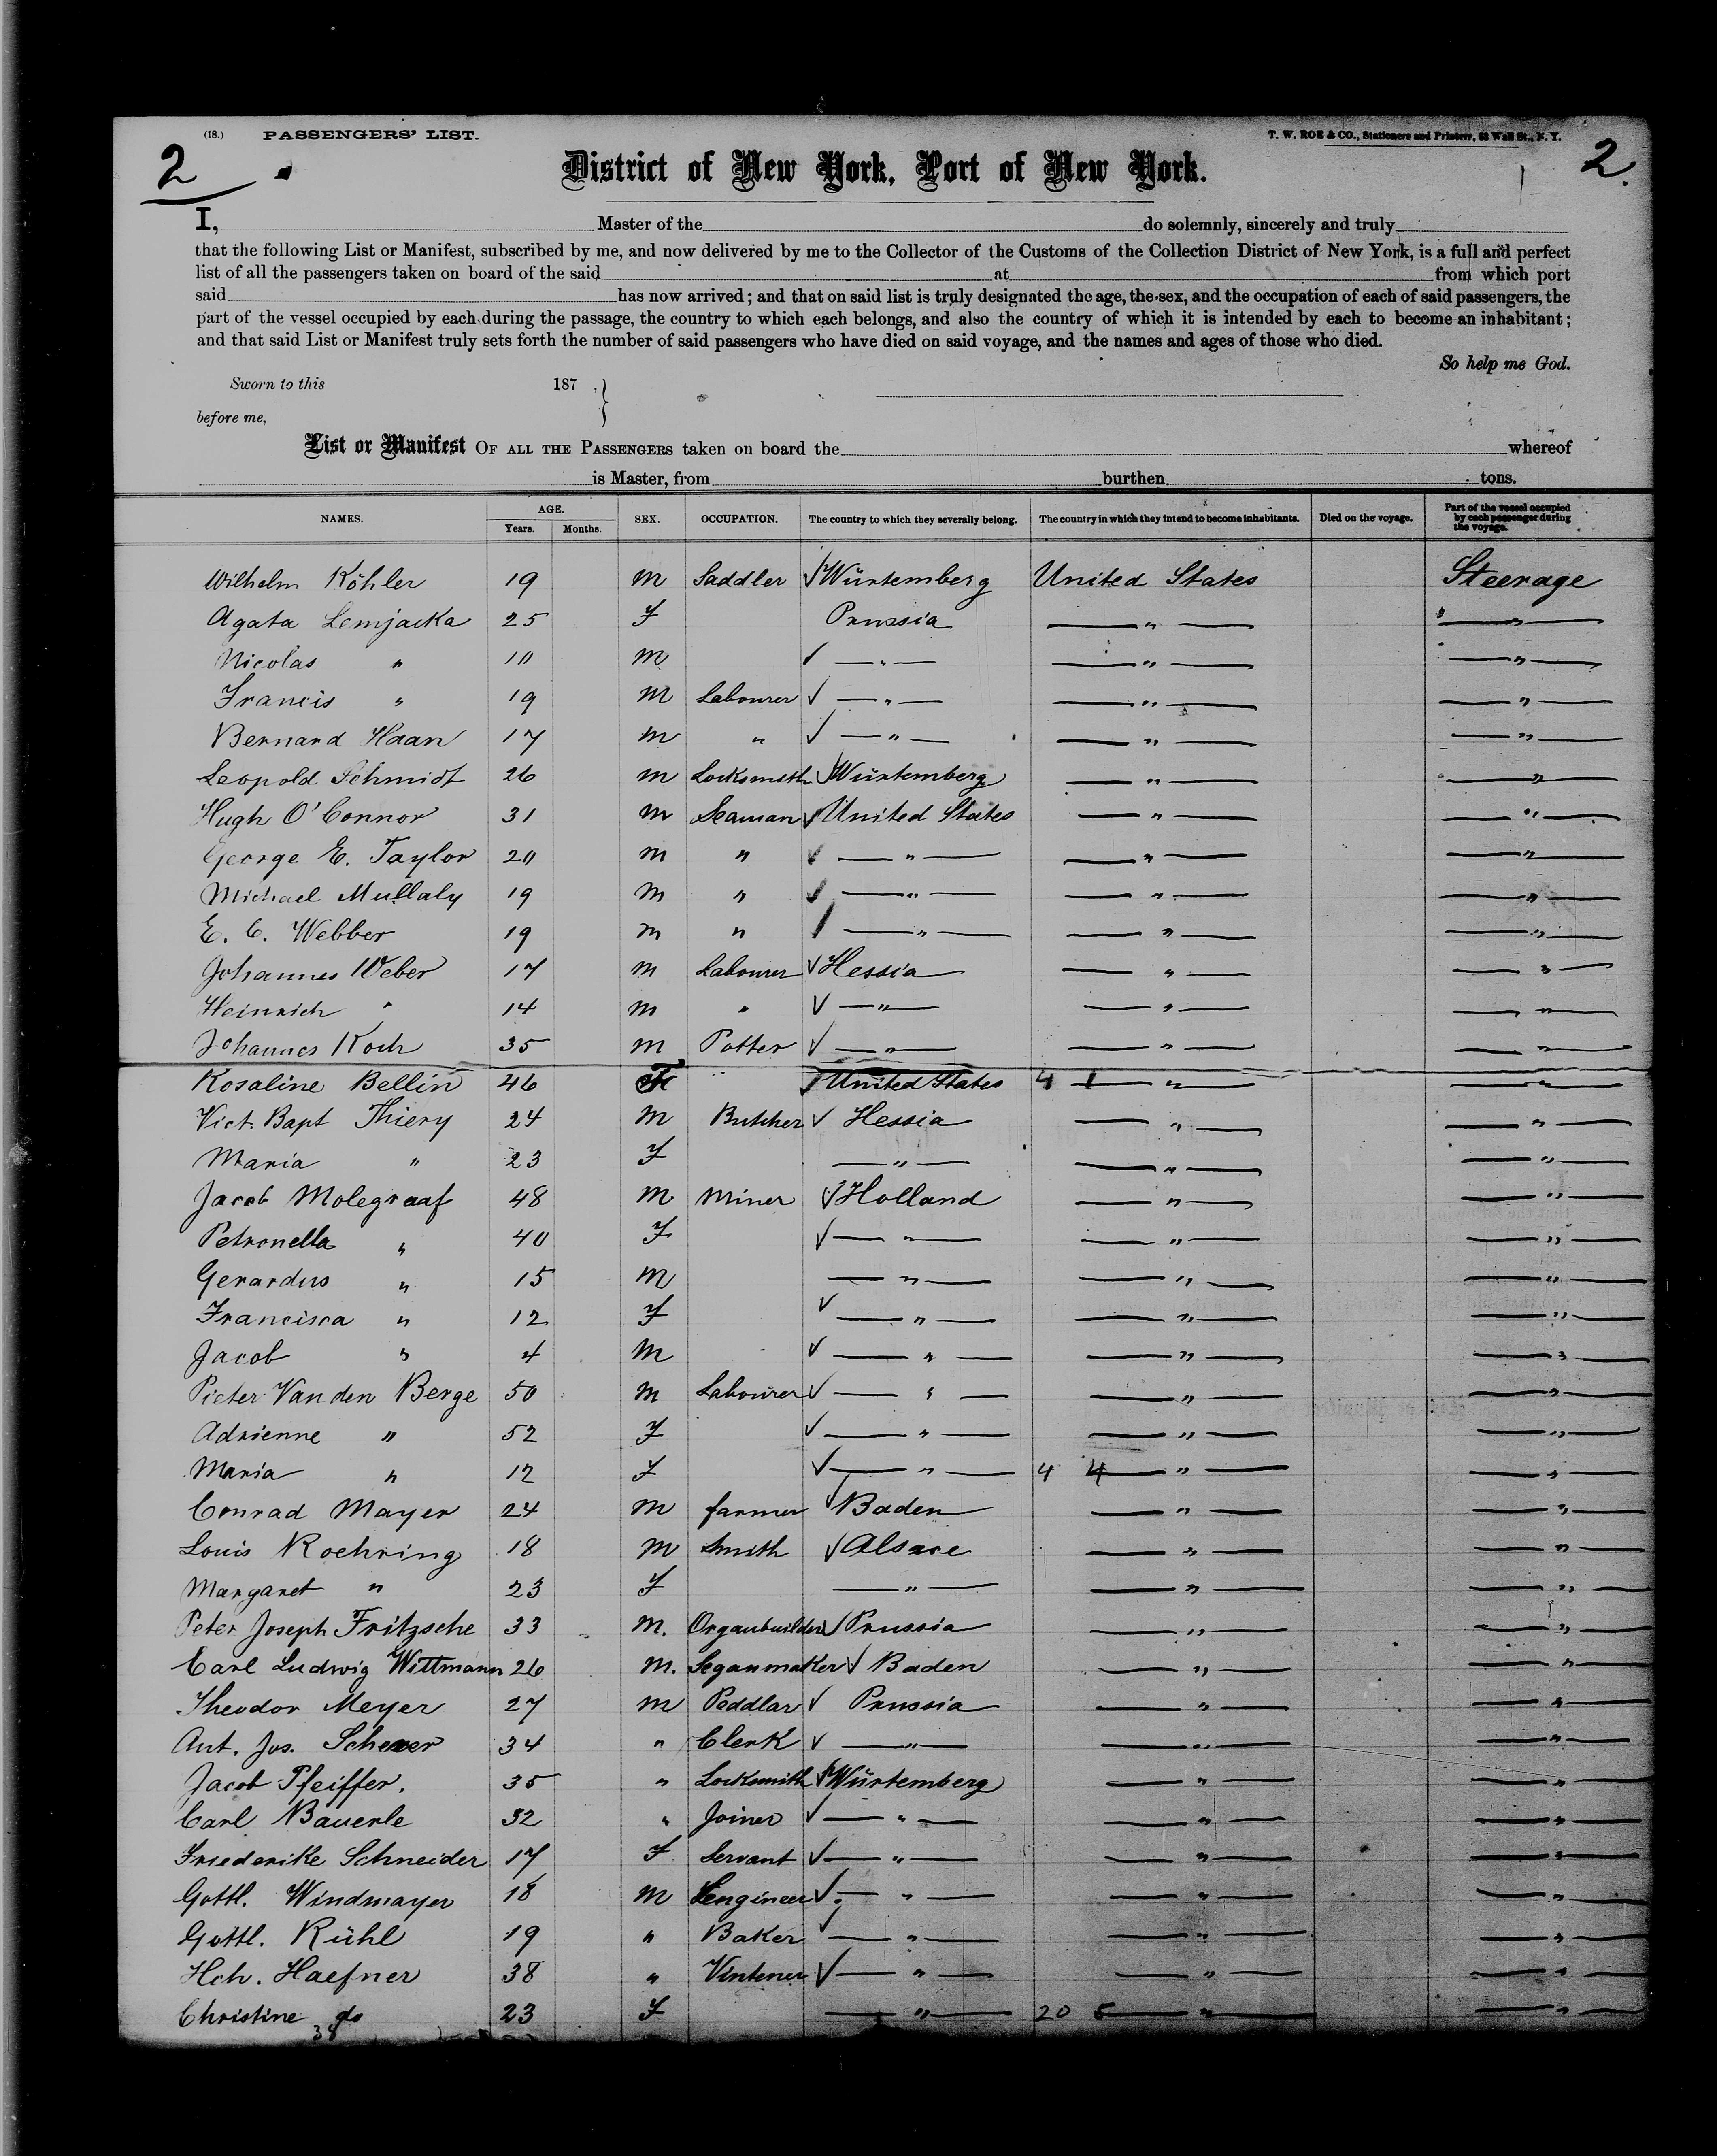 (18.) PASSENGERS' LIST. T. W. ROE & CO., Stationers and Printers, 63 Wall St., N. Y.
2 2.
District of New York, Port of New York.
I, Master of the do solemnly, sincerely and truly
that the following List or Manifest, subscribed by me, and now delivered by me to the Collector of the Customs of the Collection District of New York, is a full and perfect
list of all the passengers taken on board of the said at from which port
said has now arrived; and that on said list is truly designated the age, the sex, and the occupation of each of said passengers, the
part of the vessel occupied by each during the passage, the country to which each belongs, and also the country of which it is intended by each to become an inhabitant;
and that said List or Manifest truly sets forth the number of said passengers who have died on said voyage, and the names and ages of those who died.
So help me God.
Sworn to this 187 ,
before me,
List or Manifest OF ALL THE PASSENGERS taken on board the whereof
is Master, from burthen tons.
NAMES. AGE. Years. Months. SEX. OCCUPATION. The country to which they severally belong. The country in which they intend to become inhabitants. Died on the voyage. Part of the vessel occupied by each passenger during the voyage.
Wilhelm Köhler 19 M Saddler √ Würtemberg United States Steerage
Agata Lemjacka 25 F Prussia — " — — " —
Nicolas " 10 M √ — " — — " — — " —
Francis " 19 M Labourer √ — " — — " — — " —
Bernard Haan 17 M " √ — " — — " — — " —
Leopold Schmidt 26 M Locksmith √ Würtemberg — " — — " —
Hugh O'Connor 31 M Seaman √ United States — " — — " —
George E. Taylor 20 M " √ — " — — " — — " —
Michael Mullaly 19 M " √ — " — — " — — " —
E. C. Webber 19 M " / — " — — " — — " —
Johannes Weber 17 M Labourer √ Hessia — " — — " —
Heinrich " 14 M " √ — " — — " — — " —
Johannes Koch 35 M Potter √ — " — — " — — " —
Rosaline Bellin 46 F √ United States 4 1 — " — — " —
Vict. Bapt Thiery 24 M Butcher √ Hessia — " — — " —
Maria " 23 F — " — — " — — " —
Jacob Molegraaf 48 M Miner √ Holland — " — — " —
Petronella " 40 F √ — " — — " — — " —
Gerardus " 15 M — " — — " — — " —
Francisca " 12 F √ — " — — " — — " —
Jacob " 4 M √ — " — — " — — " —
Pieter Van den Berge 50 M Labourer √ — " — — " — — " —
Adrienne " 52 F √ — " — — " — — " —
Maria " 12 F √ — " — 4 4 — " — — " —
Conrad Mayer 24 M farmer √ Baden — " — — " —
Louis Roehring 18 M Smith √ Alsace — " — — " —
Margaret " 23 F — " — — " — — " —
Peter Joseph Fritzsche 33 M. Organbuilder √ Prussia — " — — " —
Carl Ludwig Wittmann 26 M. Segarmaker √ Baden — " — — " —
Theodor Meyer 27 M Peddlar √ Prussia — " — — " —
Ant. Jos. 34 " Clerk √ — " — — " — — " —
Jacob Pfeiffer. 35 " Locksmith √ Würtemberg — " — — " —
Carl Bauerle 32 " Joiner √ — " — — " — — " —
Friederike Schneider 17 F Servant √ — " — — " — — " —
Gottl. Windmayer 18 M Engineer √ — " — — " — — " —
Gottl. Rühl 19 " Baker √ — " — — " — — " —
Hch. Haefner 38 " Vintener √ — " — — " — — " —
Christine do 23 F — " — 20 5 — " — — " —
38